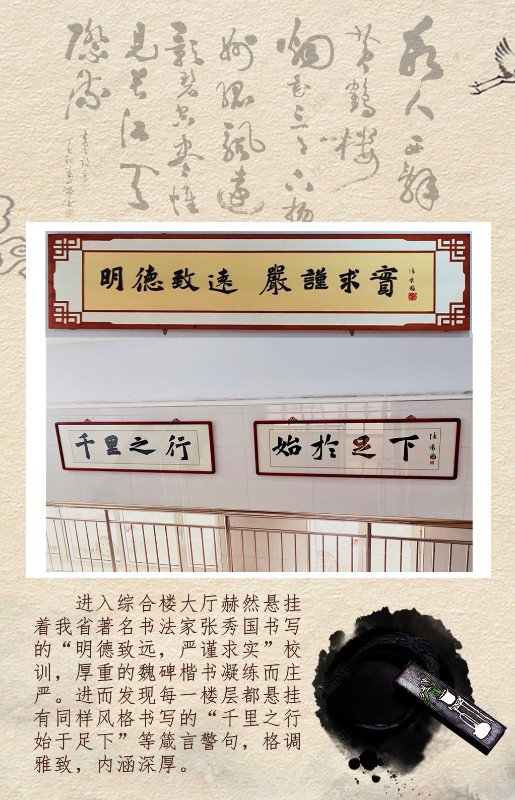 故人西辭
黄鶴樓
烟花三月下揚
州孤遠
影碧空盡惟
見長江天
際流
明德致遠 嚴謹求實
張秀國
千里之行
始於足下
張秀國
进入综合楼大厅赫然悬挂
着我省著名书法家张秀国书写
的“明德致远，严谨求实”校
训，厚重的魏碑楷书凝练而庄
严。进而发现每一楼层都悬挂
有同样风格书写的“千里之行
始于足下”等箴言警句，格调
雅致，内涵深厚。